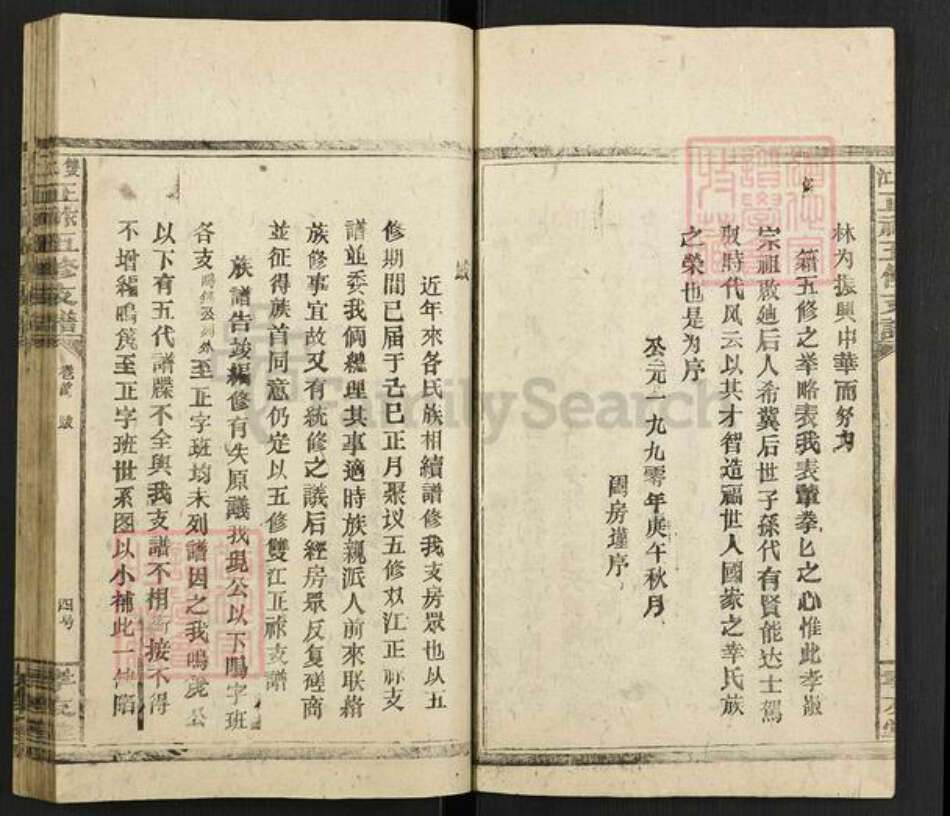 林为振興中華而努力
籍五修之举略表我表董拳匕之心惟此孝嵗
宗祖啟廸后人希冀后世子孫代有賢能达士駕
馭時代风云以其才智造福世人國家之幸氏族
之榮也是为序
公元一九九零年庚午秋月
闔房谨序
跋
近年來各氏族相續譜修我支房眾也以五
修期間已届于己巳正月聚议五修双江正禄支
譜並委我倆總理其事適時族親派人前來联絡
族修事宜故又有統修之議后經房眾反复磋商
並征得族首同意仍定以五修雙江正禄支譜
族譜告竣編修有失原議找現公以下鳴字班
各支至正字班均未列譜因之我鳴 公
以下有五代譜牒不全與我支譜不相衔接不得
不增編鳴 至正字班世系图以小補此一 陷
雙江正禄五修支譜
卷首
跋
四号
江正禄五修支譜
FamilySearch